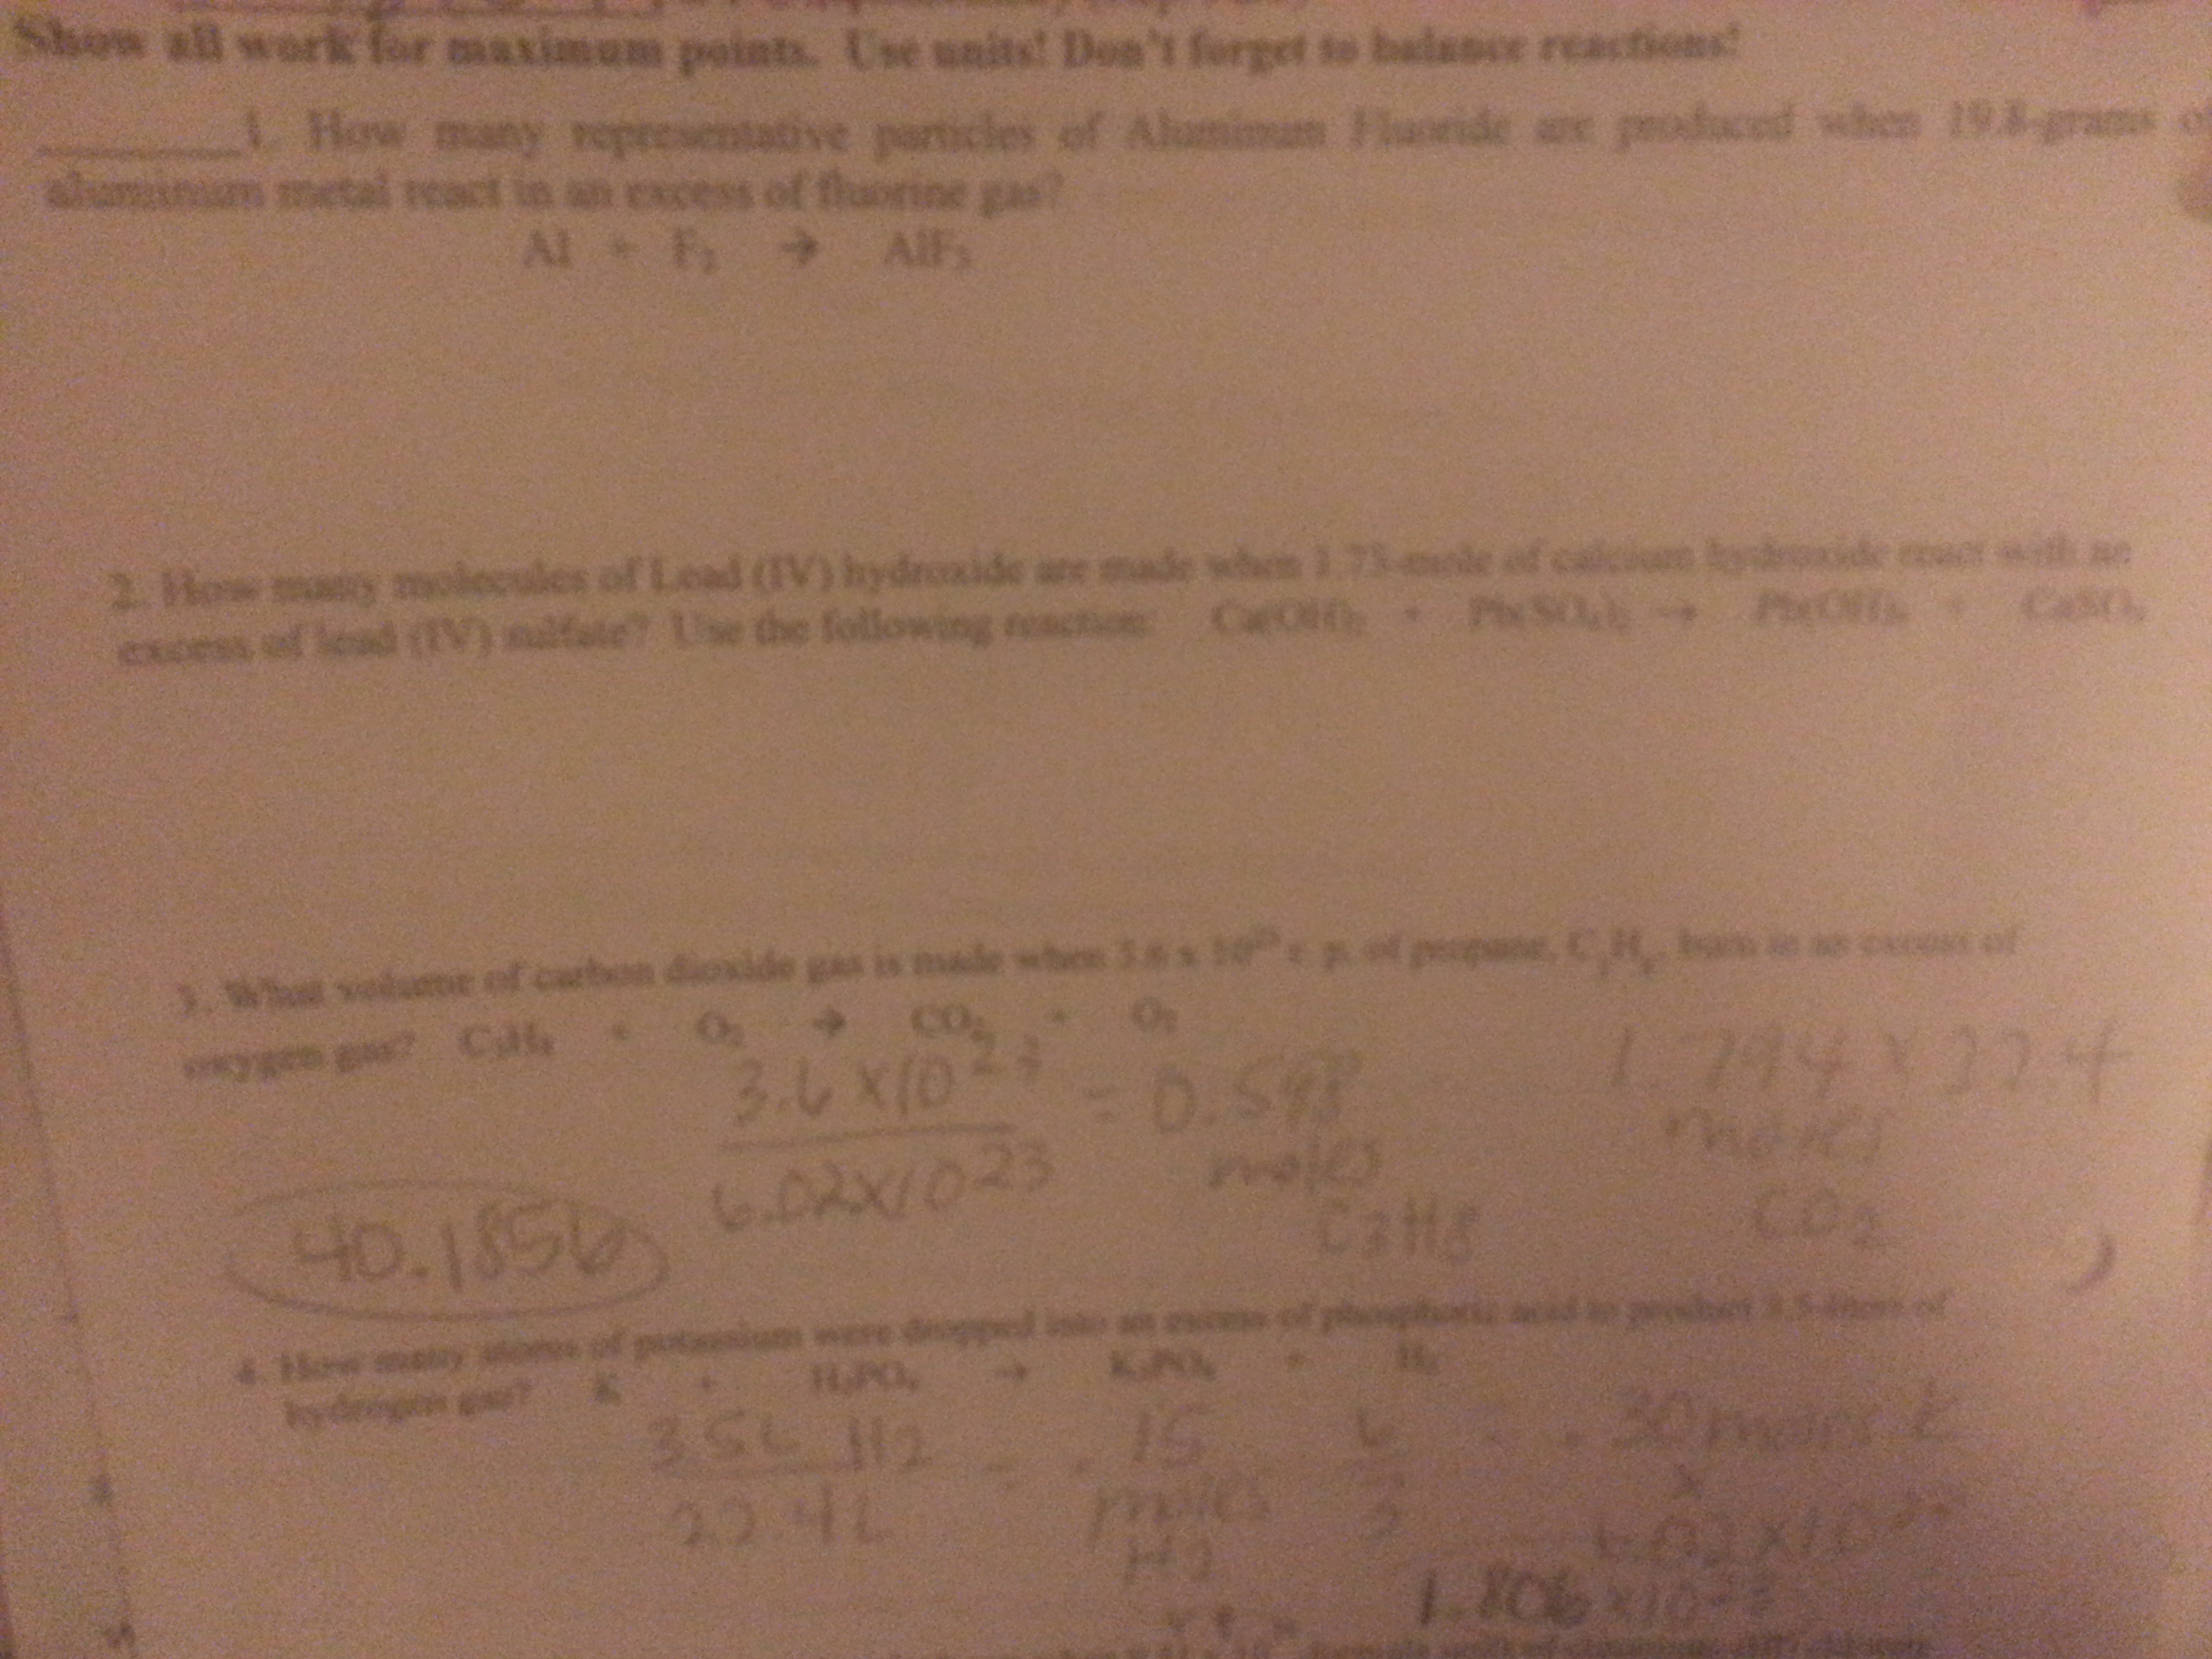 Show all work for maximum points. Use units! Don't forget to balance reactions!
1. How many representative particles of Aluminum Fluoride are produced when 19.8-grams
aluminum metal react in an excess of fluorine gas?
Al + F₂ → AlF₃
2. How many molecules of Lead (IV) hydroxide are made when 1.73-mole of calcium hydroxide react with an
excess of lead (IV) sulfate? Use the following reaction: Ca(OH)₂ + Pb(SO₄)₂ → Pb(OH)₄ + CaSO₄
3. What volume of carbon dioxide gas is made when 3.6 x 10²³ r. p. of propane, C₃H₈, burn in an excess of
oxygen gas? C₃H₈ + O₂ → CO₂ + O₂
3.6 x10²³ = 0.598 1.794 x 22.4
6.02x10²³ moles moles
40.1856 C3H8 CO₂
4. How many atoms of potassium were dropped into an excess of phosphoric acid to product 3.5-liters of
hydrogen gas? K + H₃PO₄ → K₃PO₄ + H₂
3.5L H2 = .15 6 = .30 moles K
22.4L moles x
H2 6.02x10
1.806 x10